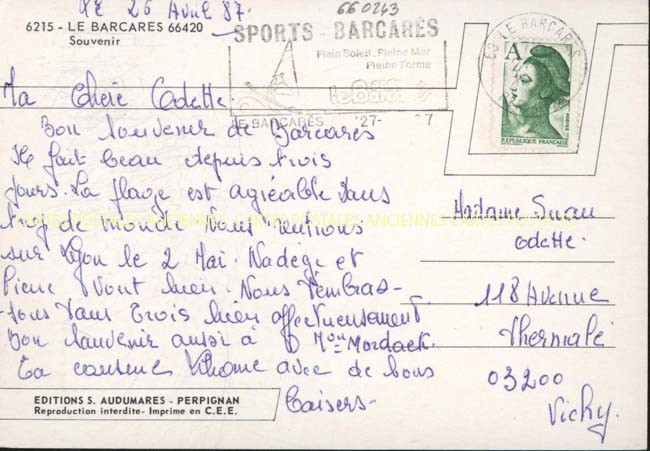 Le 26 Avril 87.
660243
6215 - LE BARCARES 66420
Souvenir
SPORTS - BARCARÈS
Plein Soleil. Pleine Mer
Pleine Forme
LE BARCARÈS 27-
66 LE BARCARES
A
REPUBLIQUE FRANÇAISE
POSTES
Ma chère Odette.
Bon Souvenir de Barcares
Il fait beau depuis trois
jours. La plage est agréable sans
trop de monde. Nous rentrons
sur Lyon le 2 Mai. Nadège et
Pierre Vont bien. Nous t'embras-
sons tous trois bien affectueusement
Bon Souvenir aussi à
Ta cousine avec de bons
baisers.
Madame
Odette.
118 Avenue
Thermale
03200
Vichy.
CARTES POSTALES ANCIENNES
EDITIONS S. AUDUMARES - PERPIGNAN
Reproduction interdite- Imprime en C.E.E.